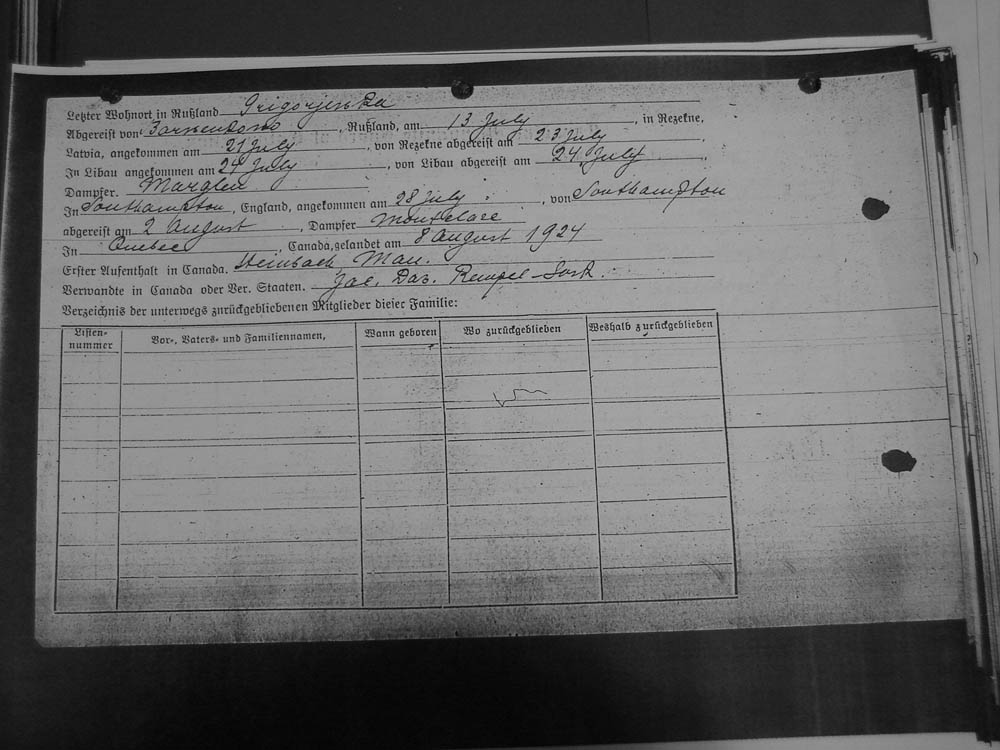 Letzter Wohnort in Rußland Grigorjewka
Abgereist von Barwenkowo, Rußland, am 13 July, in Rezekne,
Latvia, angekommen am 21 July, von Rezekne abgereist am 23 July
In Libau angekommen am 24 July, von Libau abgereist am 24 July,
Dampfer. Marglen
In Southampton, England, angekommen am 28 July, von Southampton
abgereist am 2 August, Dampfer Montclare
In Quebec, Canada, gelandet am 8 August 1924
Erster Aufenthalt in Canada. Steinbach Man.
Verwandte in Canada oder Ver. Staaten. Jac. Dav. Rempel - Sask.
Verzeichnis der unterwegs zurückgebliebenen Mitglieder dieser Familie:
Listen-nummer Vor-, Vaters- und Familiennamen, Wann geboren Wo zurückgeblieben Weshalb zurückgeblieben